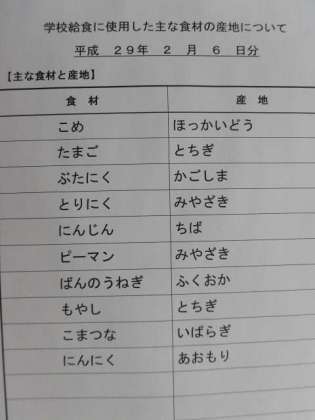 学校給食に使用した主な食材の産地について
平成 29年 2 月 6 日分
【主な食材と産地】
食 材 産 地
こめ ほっかいどう
たまご とちぎ
ぶたにく かごしま
とりにく みやざき
にんじん ちば
ピーマン みやざき
ばんのうねぎ ふくおか
もやし とちぎ
こまつな いばらぎ
にんにく あおもり